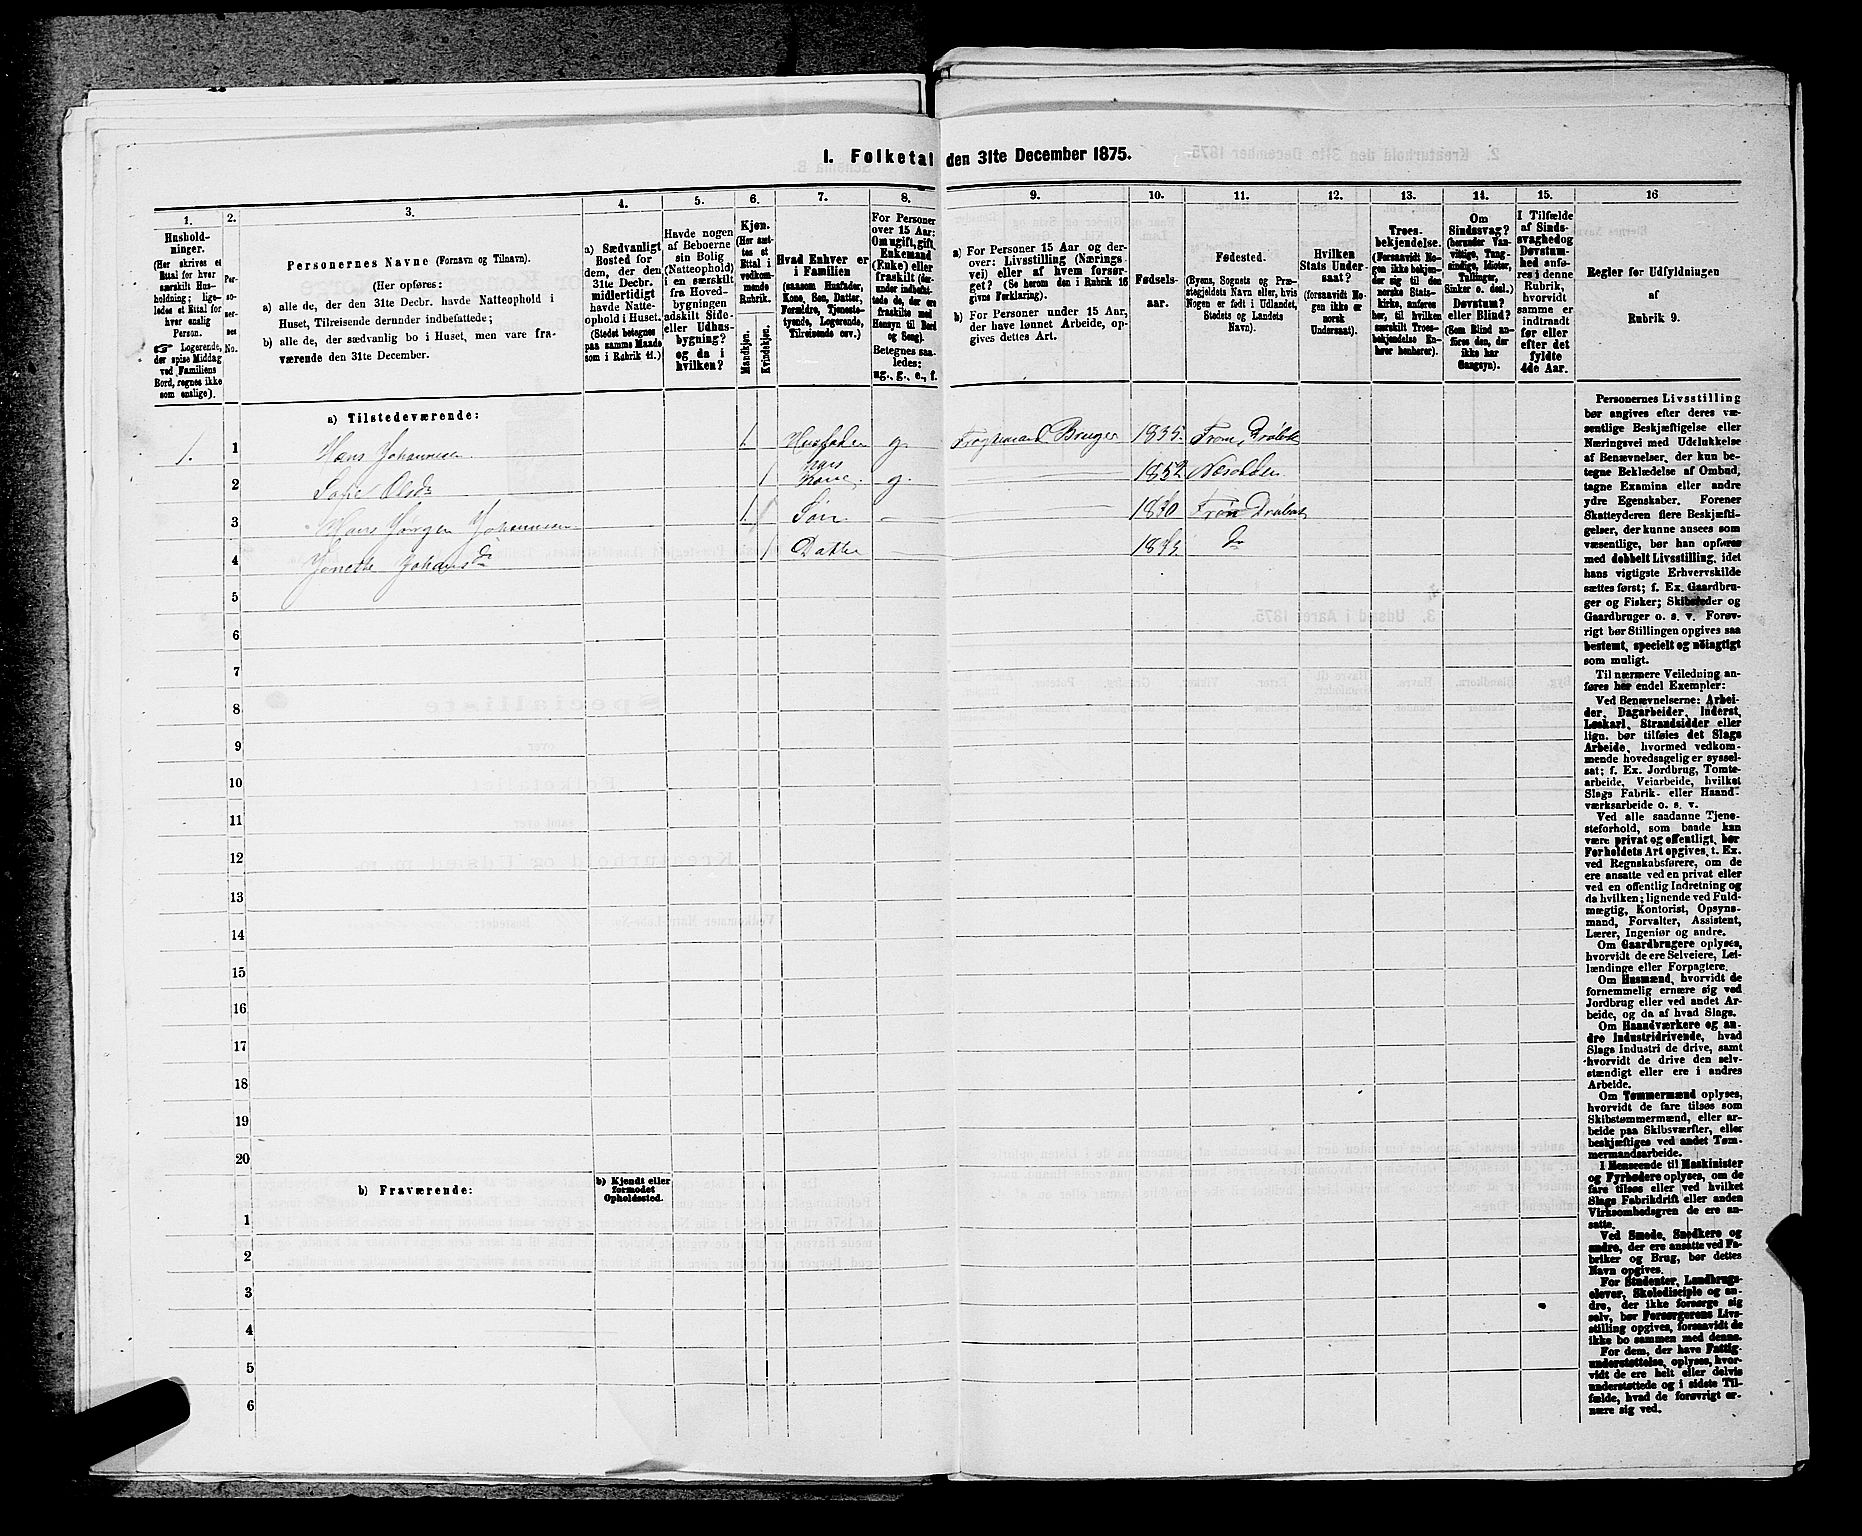 1. Folketal den 31te December 1875.
1.
Hushold-
ninger.
(Her skrives et
Ettal for hver
særskilt Hus-
holdning; lige-
ledes et Ettal for
hver enslig
Person.
☞ Logerende,
der spise Middag
ved Familiens
Bord, regnes ikke
som enslige).
2.
Per-
so-
ner-
nes
No.
3.
Personernes Navne (Fornavn og Tilnavn).
(Her opføres:
a) alle de, der den 31te Decbr. havde Natteophold i
Huset, Tilreisende derunder indbefattede;
b) alle de, der sædvanlig bo i Huset, men vare fra-
værende den 31te December.
4.
a) Sædvanligt
Bosted for
dem, der den
31te Decbr.
midlertidigt
havde Natte-
ophold i Huset.
(Stedet betegnes
paa samme Maade
som i Rubrik 11.)
5.
Havde nogen
af Beboerne
sin Bolig
(Natteophold)
i en særskilt
fra Hoved-
bygningen
adskilt Side-
eller Udhus-
bygning?
og da i
hvilken?
6.
Kjøn.
(Her sæt-
tes et
Ettal i
vedkom-
mende
Rubrik.
Mandkjøn.
Kvindekjøn.
7.
Hvad Enhver er
i Familien
(saasom Husfader,
Kone, Søn, Datter,
Forældre, Tjeneste-
tyende, Logerende,
Tilreisende osv.)
8.
For Personer
over 15 Aar:
Om ugift, gift,
Enkemand
(Enke) eller
fraskilt (der-
under indbefat-
tede de, der ere
fraskilte med
Hensyn til Bord
og Seng).
Betegnes saa-
ledes:
ug., g., e., f.
9.
a) For Personer 15 Aar og der-
over: Livsstilling (Nærings-
vei) eller af hvem forsør-
get? (Se herom den i Rubrik 16
givne Forklaring).
b) For Personer under 15 Aar,
der have lønnet Arbeide, op-
gives dettes Art.
10.
Fødsels-
aar.
11.
Fødested.
(Byens, Sognets og Præ-
stegjeldets Navn eller, hvis
Nogen er født i Udlandet,
Stedets og Landets
Navn).
12.
Hvilken
Stats Under-
saat?
(forsaavidt No-
gen ikke er
norsk
Undersaat).
13.
Troes-
bekjendelse.
(Forsaavidt No-
gen ikke bekjen-
der sig til den
norske Stats-
kirke, anføres
her, til hvilken
særskilt Troes-
bekjendelse En-
hver henhører).
14.
Om
Sindssvag?
(herunder Van-
vittige, Tung-
sindige, Idioter,
Tullinger,
Sinker o. desl.)
Døvstum?
eller Blind?
(Som Blind an-
føres den, der
ikke har
Gangsyn).
15.
I Tilfælde
af Sinds-
svaghedog
Døvstum-
hed anfø-
res i denne
Rubrik,
hvorvidt
samme er
indtraadt
før eller
efter det
fyldte
4de Aar.
16
Regler for Udfyldningen
af
Rubrik 9.
a) Tilstedeværende:
1. 1 Hans Johannesen 1. Husfader g. Bruger 1835. Drøbak
2 Olsd. 1 hans Kone. g. 1852 Næsodden
3 Hans Jørgen Johannesen 1. Søn. 1870 Drøbak
4 Johansd. 1 Datter 1873. Do
5
6
7
8
9
10
11
12
13
14
15
16
17
18
19
20
b) Fraværende:
b) Kjendt eller
formodet
Opholdssted.
1
2
3
4
5
6
Personernes Livsstilling
bør angives efter deres væ-
sentlige Beskjæftigelse eller
Næringsvei med Udelukkelse
af Benævnelser, der kun be-
tegne Beklædelse af Ombud,
tagne Examina eller andre
ydre Egenskaber. Forener
Skatteyderen flere Beskjæfti-
gelser, der kunne ansees som
væsentlige, bør han opføres
med dobbelt Livsstilling, idet
hans vigtigste Erhvervskilde
sættes først; f. Ex. Gaardbru-
ger og Fisker; Skibsreder og
Gaardbruger o. s. v. Forøv-
rigt bør Stillingen opgives saa
bestemt, specielt og nøiagtigt
som muligt.
Til nærmere Veiledning an-
føres her endel Exempler:
Ved Benævnelserne: Arbei-
der, Dagarbeider, Inderst,
Løskarl, Strandsidder eller
lign. bør tilføies det Slags
Arbeide, hvormed vedkom-
mende hovedsagelig er syssel-
sat; f. Ex. Jordbrug, Tomte-
arbeide, Veiarbeide, hvilket
Slags Fabrik- eller Haand-
værksarbeide o. s. v.
Ved alle saadanne Tjene-
steforhold, som baade kan
være privat og offentligt, bør
Forholdets Art opgives, t. Ex.
ved Regnskabsførere, om de
ere ansatte ved en privat eller
ved en offentlig Indretning og
da hvilken; lignende ved Fuld-
mægtig, Kontorist, Opsyns-
mand, Forvalter, Assistent,
Lærer, Ingeniør og andre.
Om Gaardbrugere oplyses,
hvorvidt de ere Selveiere, Lei-
lændinge eller Forpagtere.
Om Husmænd, hvorvidt de
fornemmelig ernære sig ved
Jordbrug eller ved andet Ar-
beide, og da af hvad Slags.
Om Haandværkere og an-
dre Industridrivende, hvad
Slags Industri de drive, samt
hvorvidt de drive den selv-
stændigt eller ere i andres
Arbeide.
Om Tømmermænd oplyses,
hvorvidt de fare tilsøs som
Skibstømmermænd, eller ar-
beide paa Skibsværfter, eller
beskjæftiges ved andet Tøm-
mermandsarbeide.
I Henseende til Maskinister
og Fyrbødere oplyses, om de
fare tilsøs eller ved hvilket
Slags Fabrikdrift eller anden
Virksomhedsgren de ere an-
satte.
Ved Smede, Snedkere og
andre, der ere ansatte ved Fa-
briker og Brug, bør dettes
Navn opgives.
For Studenter, Landbrugs-
elever, Skoledisciple og an-
dre, der ikke forsørge sig
selv, bør Forsørgerens Livs-
stilling opgives, forsaavidt de
ikke bo sammen med denne.
For dem, der have Fattig-
understøttelse, oplyses, hvor-
vidt de ere helt eller delvis
understøttede og i sidste Til-
fælde, hvad de forøvrigt er-
nære sig ved.